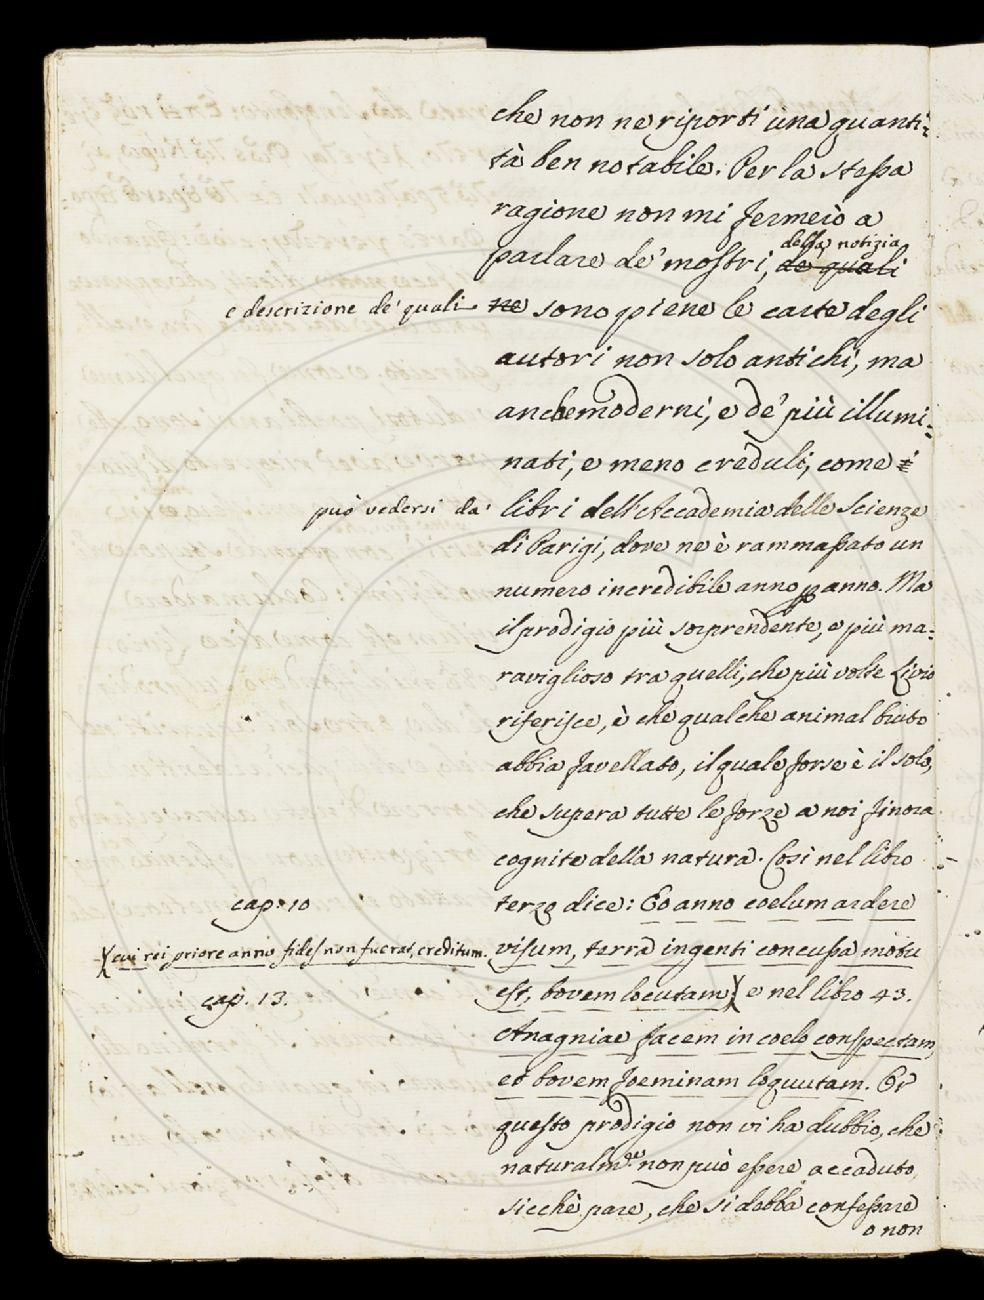 che non ne riporti una quanti=
tà ben notabile. Per la stessa
ragione non mi fermerò a
della notizia
parlare de' mostri, de quali
e descrizione de' quali ne sono piene le carte degli
autori non solo antichi, ma
anche moderni, e de' più illumi=
nati, e meno creduli, come
può vedersi da' libri dell'Accademia delle Scienze
di Parigi, dove ne è rammassato un
numero incredibile anno p anno. Ma
il prodigio più sorprendente, e più ma=
raviglioso tra quelli, che più volte Livio
riferisce, è che qualche animal bruto
abbia favellato, il quale forse è il solo,
che supera tutte le forze a noi finora
cognite della natura. Così nel libro
cap. 10 terzo dice: Eo anno coelum ardere
visum, terra ingenti concussa motu
cui rei priore anno fides non fuerat, creditum.
est, bovem locutam; e nel libro 43.
cap. 13.
Anagniae facem in coelo conspectam,
et bovem foeminam loquutam. Or
questo prodigio non vi ha dubbio, che
naturalm.te non può essere accaduto,
sicchè pare, che si debba confessare
o non